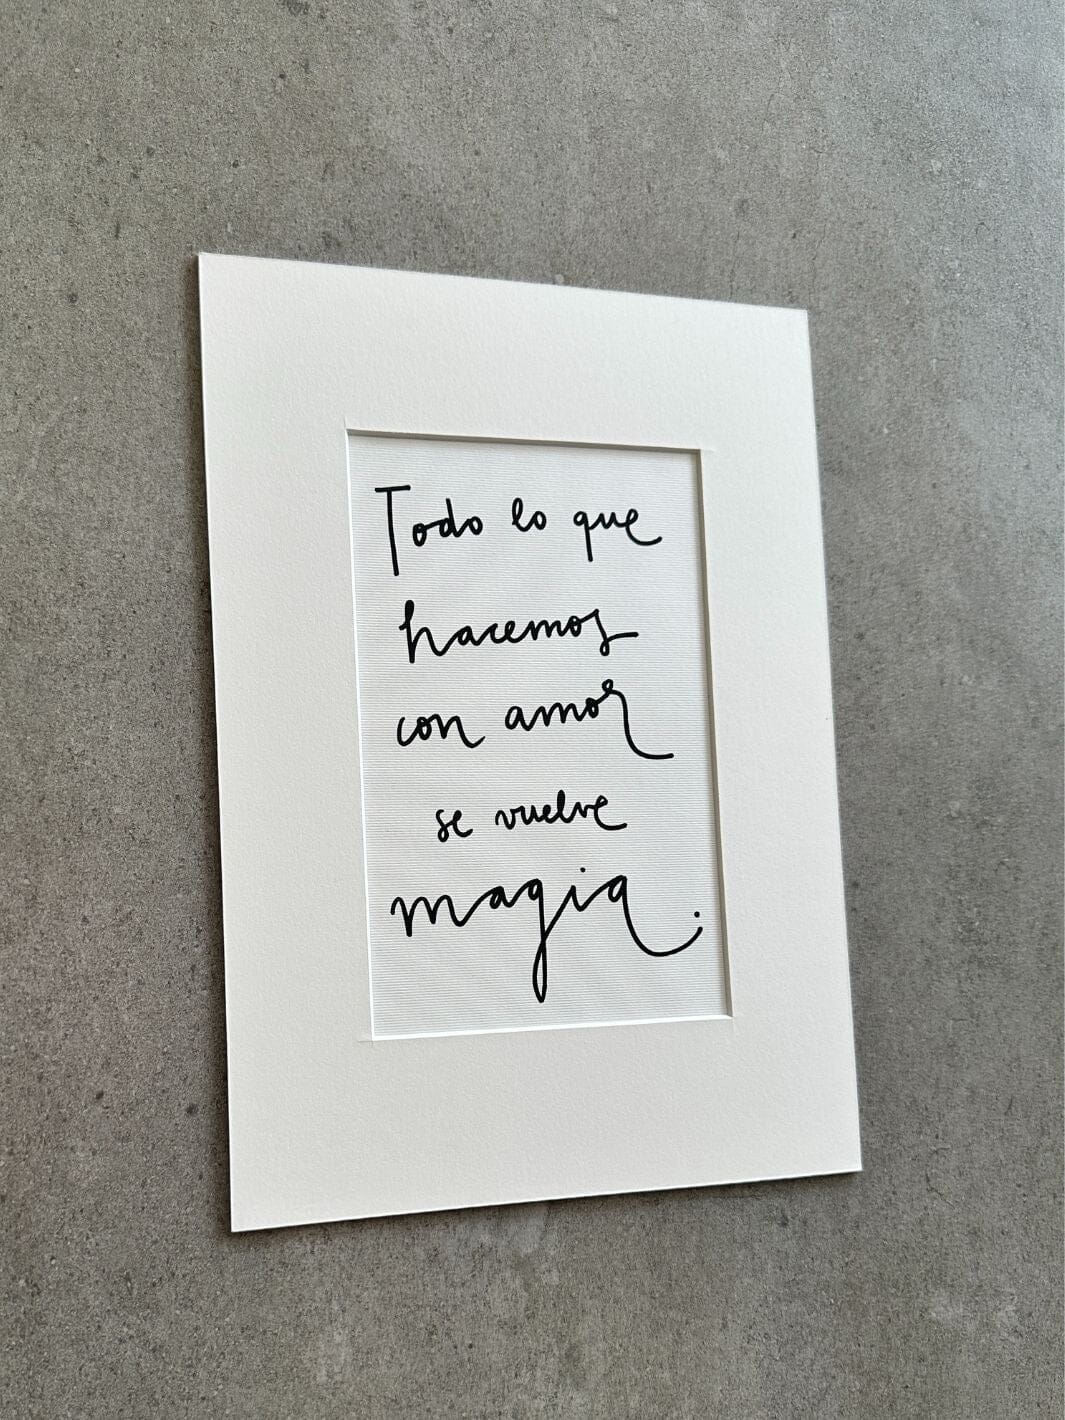 Todo lo que
hacemos
con amor
se vuelve
magia.